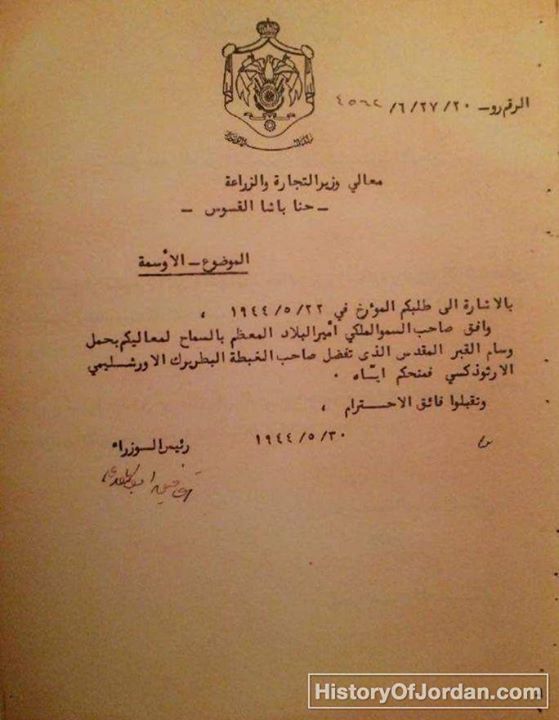 الرقم رو- ٢٠/٢٧/٦/٤٥٦٢
معالي وزير التجارة والزراعة
- حنا باشا القسوس -
الموضوع - الأوسمة
بالاشارة الى طلبكم المؤرخ في ١٩٤٤/٥/٢٢ ،
وافق صاحب السمو الملكي أمير البلاد المعظم بالسماح لمعاليكم بحمل
وسام القبر المقدس الذى تفضل صاحب الغبطة البطريرك الاورشليمي
الارثوذكسي فمنحكم ايّاه .
وتقبلوا فائق الاحترام ،
١٩٤٤/٥/٣٠
رئيس الوزراء
HistoryOfJordan.com